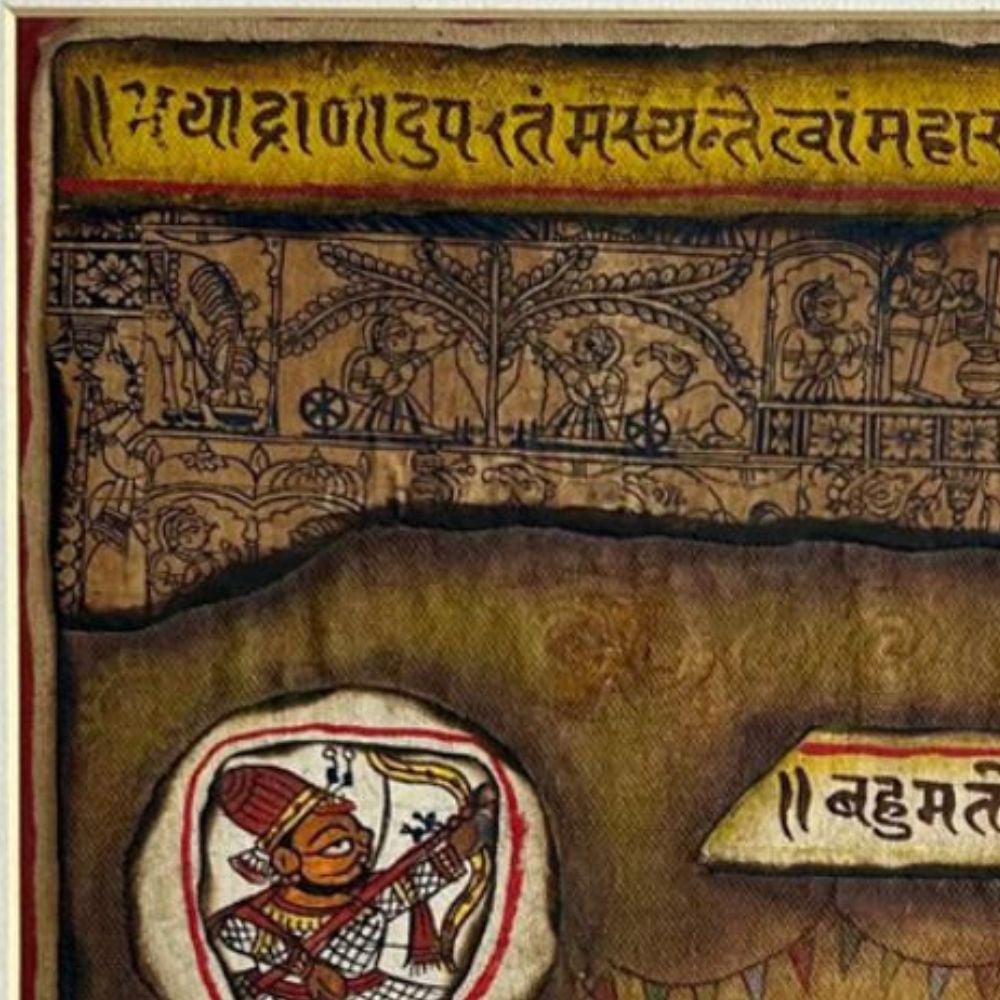 ॥ भयाद्राणादुपरतं मस्यन्ते त्वां महा
॥ बहुमत